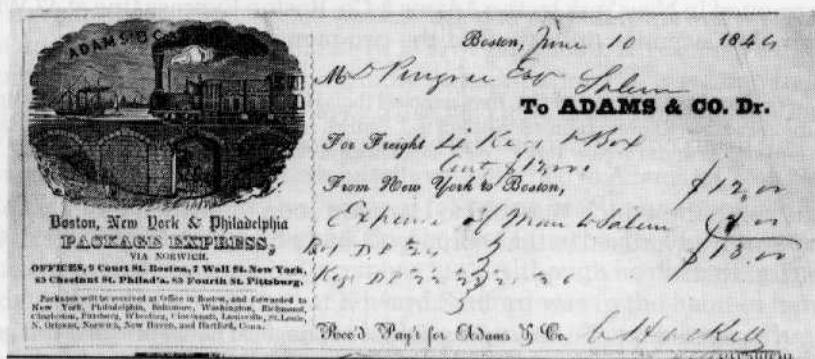 ADAMS & CO
Boston, New York & Philadelphia
PACKAGE EXPRESS,
VIA NORWICH.
OFFICES, 9 Court St. Boston, 7 Wall St. New York,
85 Chestnut St. Philad'a. 83 Fourth St. Pittsburg.
Packages will be received at Office in Boston, and forwarded to
New York, Philadelphia, Baltimore, Washington, Richmond,
Charleston, Pittsburg, Wheeling, Cincinnati, Louisville, St. Louis,
N. Orleans, Norwich, New Haven, and Hartford, Conn.
Boston, June 10 184
M D Pingree Esq Salem
To ADAMS & CO. Dr.
For Freight 4 Kegs & Box
Cont $12,000
From New York to Boston, $12.00
Expense of Man to Salem
Box D P 24
Kegs D P 22 23
Rec'd Pay't for Adams & Co. C Haskell